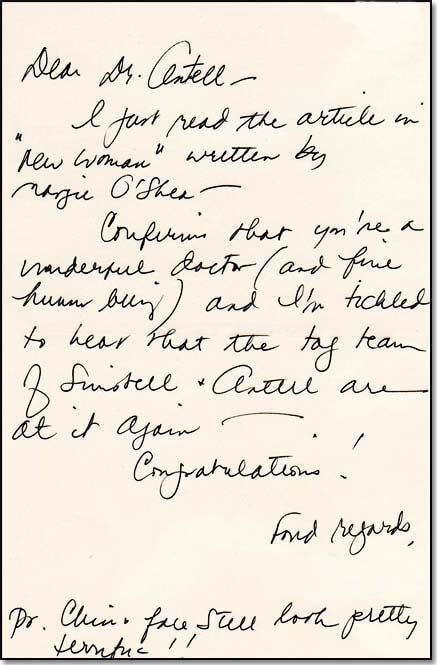 Dear Dr. Antell —
I just read the article in
"New Woman" written by
Margie O'Shea —
Confirms that you're a
wonderful doctor (and fine
human being) and I'm tickled
to hear that the tag team
of & Antell are
at it again —
Congratulations!
Fond regards,
Ps. Chin & face still look pretty
terrific!!